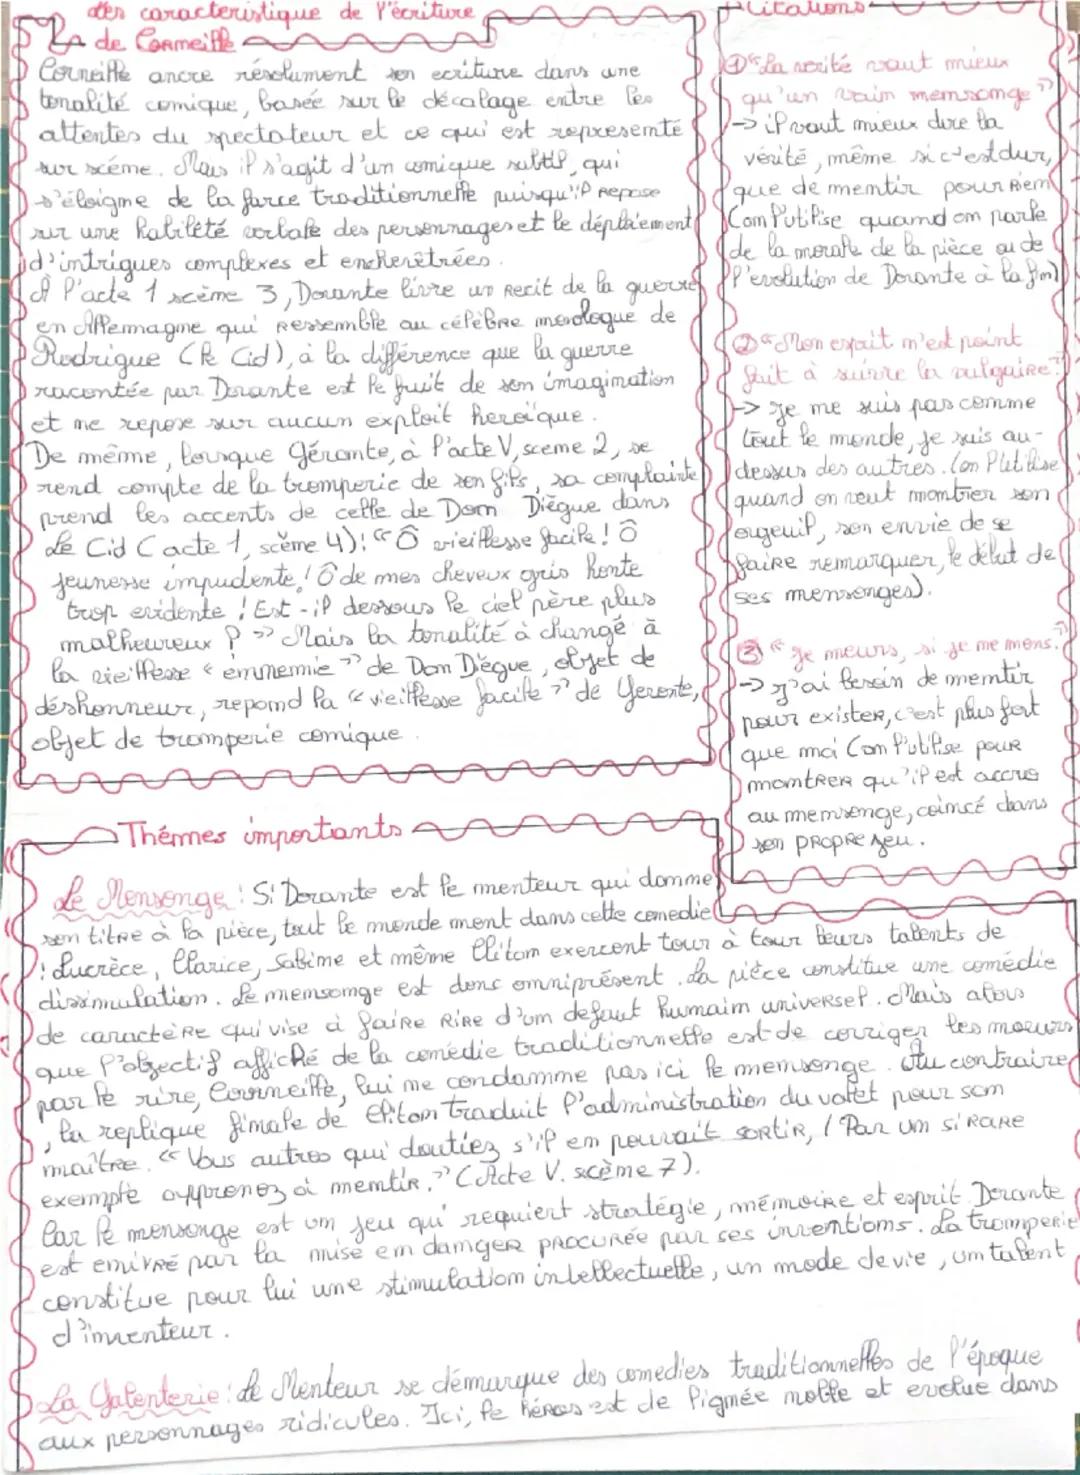 des caracteristique de l'écriture
de Corneille
Corneille ancre résolument son ecriture dans une
tonalité comique, basée sur le décalage entre les
attentes du spectateur et ce qui est representé
sur scéne. Mais il s'agit d'un comique subtil, qui
s'éloigne de la farce traditionnelle puisqu'il repose
sur une habilété verbale des personnages et le déploiement
d'intrigues complexes et enchevêtrées.
A l'acte 1 scène 3, Dorante livre un recit de la guerre
en Allemagne qui ressemble au célèbre monologue de
Rodrigue (le Cid), à la différence que la guerre
racontée par Dorante est le fruit de son imagination
et ne repose sur aucun exploit heroïque.
De même, lorsque Géronte, à l'acte V, scene 2, se
rend compte de la tromperie de son fils, sa complainte
prend les accents de celle de Dom Diègue dans
Le Cid (acte 1, scène 4): "Ô vieillesse facile! Ô
jeunesse impudente! Ô de mes cheveux gris honte
trop evidente! Est-il dessous le ciel père plus
malheureux ?" Mais la tonalité à changé à
la vieillesse « ennemie » de Don Diègue, objet de
déshonneur, repond la « vieillesse facile » de Geronte,
objet de tromperie comique.
Citations
① "La verité vaut mieux
qu'un vain mensonge"
-> il vaut mieux dire la
vérité, même si c'est dur,
que de mentir pour rien
(on l'utilise quand on parle
de la morale de la pièce ou de
l'evolution de Dorante à la fin)
② "Mon esprit n'est point
fait à suivre les vulgaire."
-> je me suis pas comme
tout le monde, je suis au-
dessus des autres. (on l'utilise
quand on veut montrer son
orgeuil, son envie de se
faire remarquer, le début de
ses mensonges).
③ "je meurs, si je me mens."
-> j'ai besoin de mentir
pour exister, c'est plus fort
que moi (on l'utilise pour
montrer qu'il est accro
au mensonge, coincé dans
son propre jeu.
Thémes importants
Le Mensonge: Si Dorante est le menteur qui donne
son titre à la pièce, tout le monde ment dans cette comedie
: Lucrèce, Clarice, Sabine et même Cliton exercent tour à tour leurs talents de
dissimulation. Le mensonge est donc omniprésent. La pièce constitue une comédie
de caractère qui vise à faire rire d'un defaut humain universel. Mais alors
que l'objectif affiché de la comédie traditionnelle est de corriger les moeurs
par le rire, Corneille, lui ne condamne pas ici le mensonge. Au contraire
, la replique finale de Cliton traduit l'administration du valet pour son
maître. "Vous autres qui doutiez s'il en pouvait sortir, / Par un si rare
exemple apprenez à mentir." (Acte V. scène 7).
Car le mensonge est un jeu qui requiert stratégie, mémoire et esprit. Dorante
est enivré par la mise en danger procurée par ses inventions. La tromperie
constitue pour lui une stimulation intellectuelle, un mode de vie, un talent
d'inventeur.
La Galenterie: Le Menteur se démarque des comedies traditionnelles de l'époque
aux personnages ridicules. Ici, le héros est de lignée noble et evolue dans